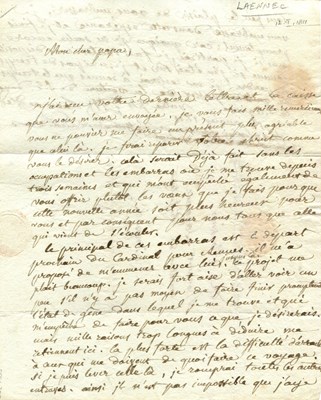 LAENNEC
Mon cher papa,
votre dernière lettre et la caisse
que vous m'avez envoyée. je vous fais mille remerciemens
vous ne pouviez me faire un présent plus agréable
que celui là. je ferai
vous le désirez. cela serait déjà fait sans les
occupations et les embarras où je me trouve depuis
trois semaines et qui m'ont empêché également de
vous offrir plutôt les vœux que je fais pour que
cette nouvelle année soit plus heureuse pour
vous et par conséquent pour nous tous que celle
qui vient de s'écouler.
le principal de ces embarras est le départ
prochain du Cardinal pour rennes. il m'a
proposé de m'emmener avec lui. le projet me
plait beaucoup. je serais fort aise d'aller voir un
peu s'il n'y a pas moyen de faire finir promptement
l'état de gêne dans lequel je me trouve et qui
m'empêche de faire pour vous ce que je désirerais.
mais mille raisons trop longues à déduire me
retiennent ici. la plus forte est la difficulté d'avoir
à ceux qui me doivent de quoi faire ce voyage.
si je puis lever celle là, je romprai toutes les autres
entraves. ainsi il n'est pas impossible que j'aye